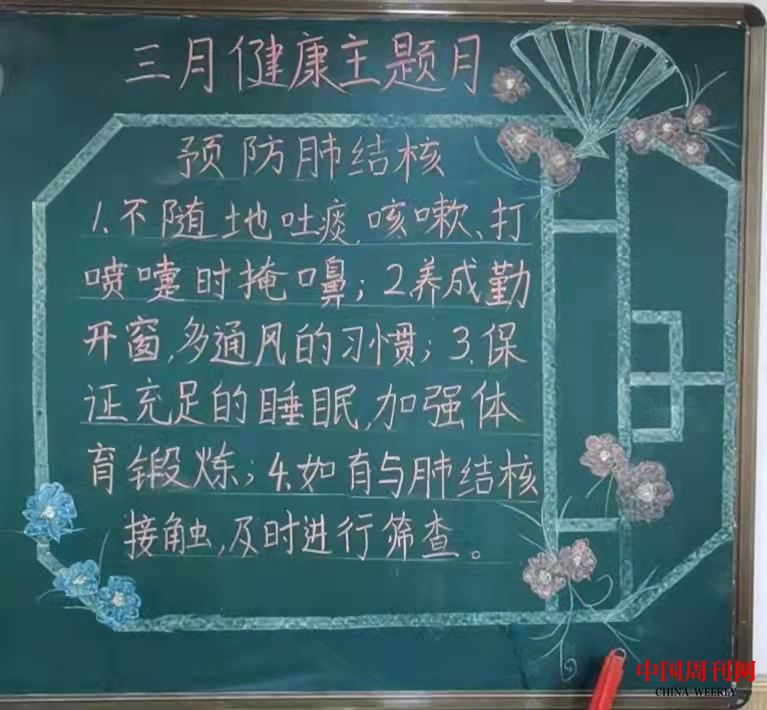 三月健康主题月
预防肺结核
1.不随地吐痰,咳嗽、打
喷嚏时掩口鼻;2养成勤
开窗,多通风的习惯;3.保
证充足的睡眠,加强体
育锻炼;4.如有与肺结核
接触,及时进行筛查。
中国周刊网
CHINA WEEKLY